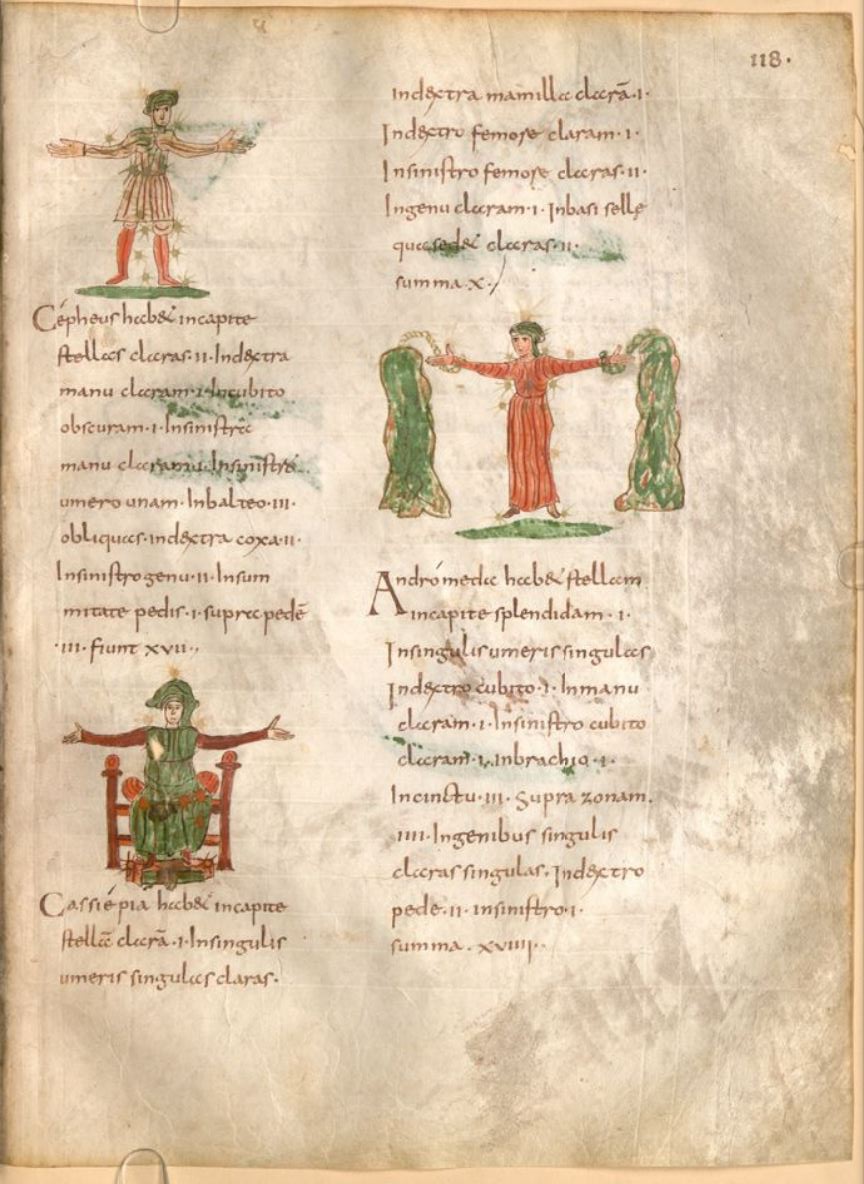 118.
Cépheus hab& incapite
stellas claras·II·Indextra
manu claram·I·Incubito
obscuram·I·Insinistra
manu claram·I·Insinistro
umero unam·Inbalteo·III·
obliquas·indextra coxa·II·
Insinistrogenu·II·Insum
mitate pedis·I·suprapedē
·III·fiunt XVII·,
Cassiépia hab& incapite
stellā clarā·I·Insingulis
umeris singulas claras·
indextra mamilla clarā·I·
Indextro femore claram·I·
Insinistro femore claras·II·
Ingenu claram·I·Inbasi sellę
qua sed& claras·II·
summa·X·/
Andrómeda hab& stellam
incapite splendidam·I·
Insingulis umeris singulas
Indextro cubito·I·Inmanu
claram·I·Insinistro cubito
claram·I·Inbrachio·I·
Incinctu·III·Supra zonam.
IIII·Ingenibus singulis
claras singulas·Indextro
pede·II·insinistro·I·
summa·XVIIII·